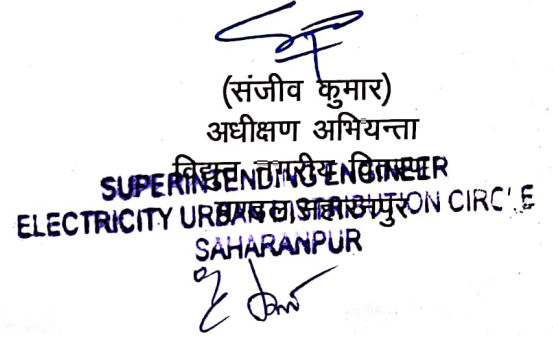 (संजीव कुमार)
अधीक्षण अभियन्ता
विद्युत नगरीय वितरण
SUPERINTENDING ENGINEER
मण्डल, सहारनपुर
ELECTRICITY URBAN DISTRIBUTION CIRCLE
SAHARANPUR